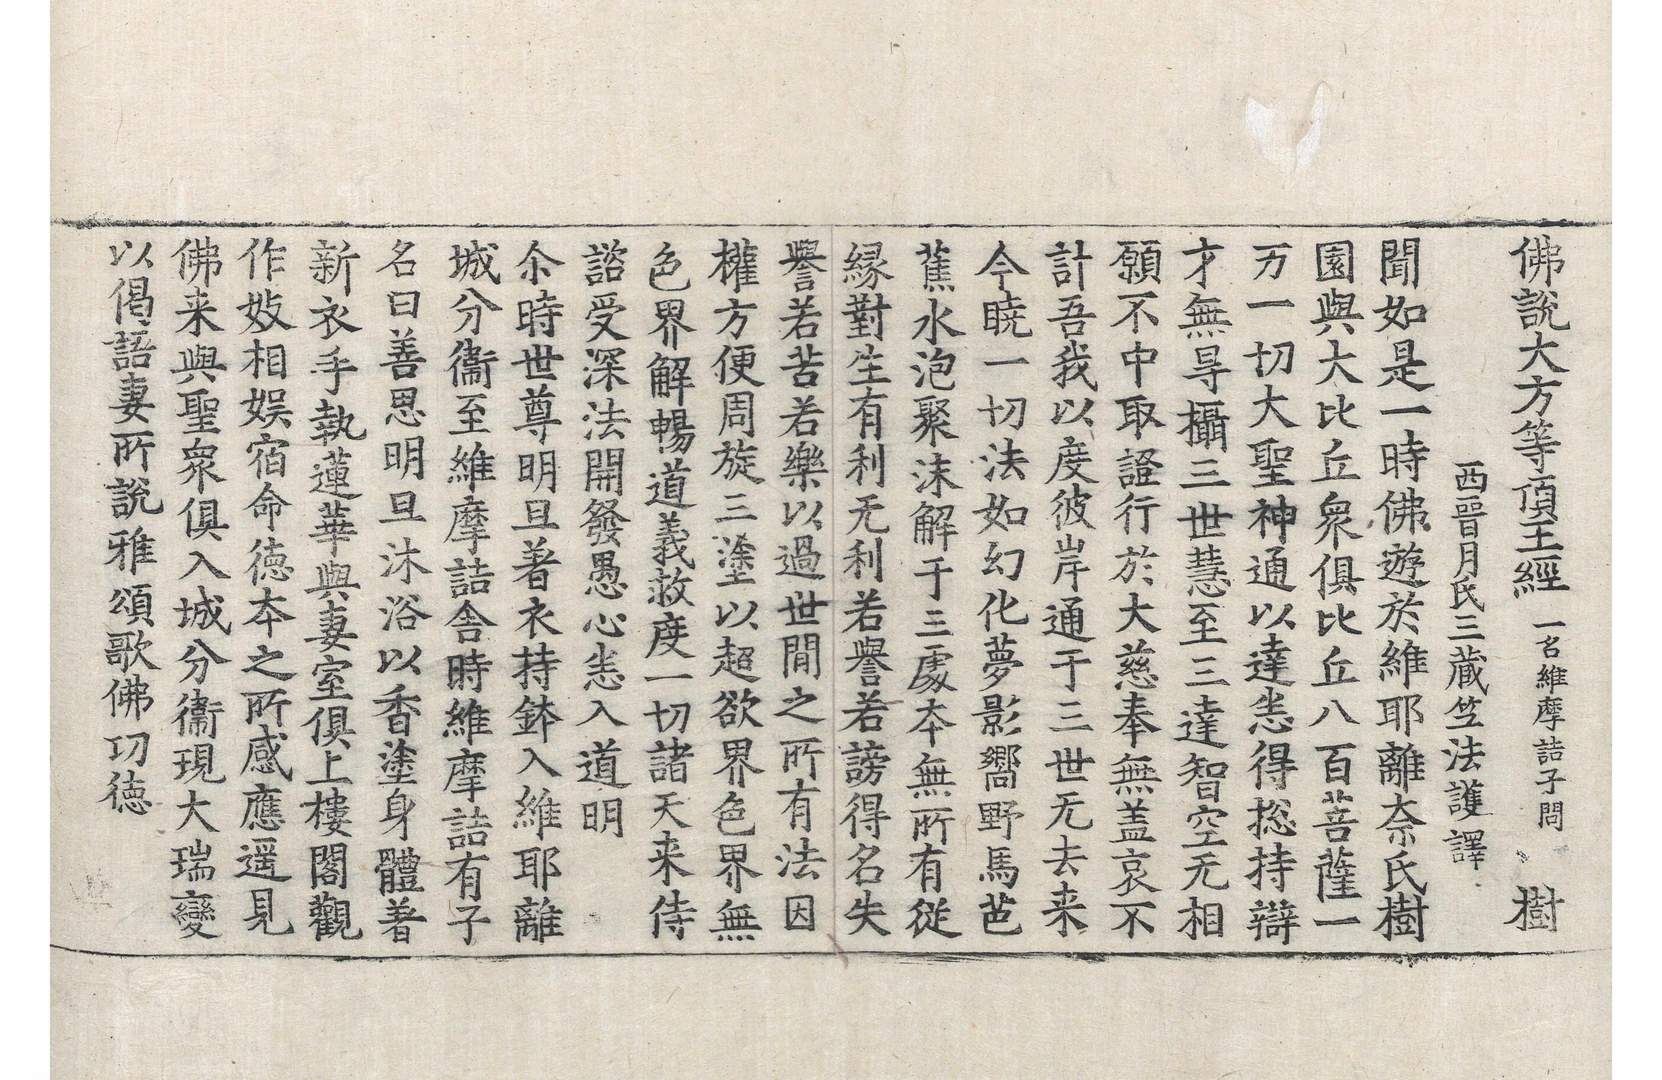 佛說大方等頂王經 一名維摩詰子問 樹
西晉月氏三藏竺法護譯
聞如是一時佛遊於維耶離奈氏樹
園與大比丘衆俱比丘八百菩薩一
万一切大聖神通以達悉得捴持辯
才無㝵攝三世慧至三達智空无相
願不中取證行於大慈奉無盖哀不
計吾我以度彼岸通于三世无去来
今曉一切法如幻化夢影嚮野馬芭
蕉水泡聚沫解于三處本無所有從
緣對生有利无利若譽若謗得名失
譽若苦若樂以過世間之所有法因
權方便周旋三塗以超欲界色界無
色界解暢道義救度一切諸天来侍
諮受深法開發愚心悉入道明
尒時世尊明旦著衣持鉢入維耶離
城分衞至維摩詰舍時維摩詰有子
名曰善思明旦沐浴以香塗身體著
新衣手執蓮華與妻室俱上樓閣觀
作妓相娛宿命德本之所感應遥見
佛来與聖衆俱入城分衞現大瑞變
以偈語妻所說雅頌歌佛功德